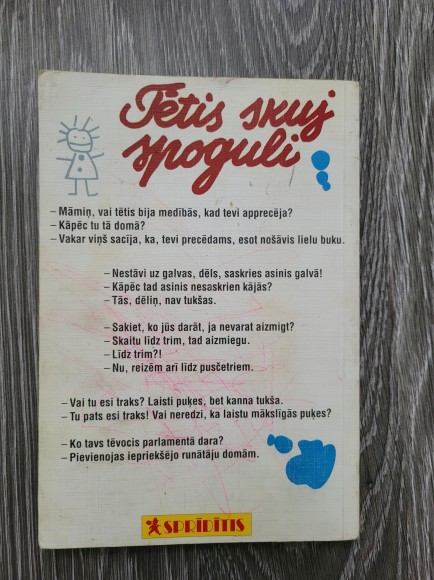 Tētis skuj
spoguli
– Māmiņ, vai tētis bija medībās, kad tevi apprecēja?
– Kāpēc tu tā domā?
– Vakar viņš sacīja, ka, tevi precēdams, esot nošāvis lielu buku.
– Nestāvi uz galvas, dēls, saskries asinis galvā!
– Kāpēc tad asinis nesaskrien kājās?
– Tās, dēliņ, nav tukšas.
– Sakiet, ko jūs darāt, ja nevarat aizmigt?
– Skaitu līdz trim, tad aizmiegu.
– Līdz trim?!
– Nu, reizēm arī līdz pusčetriem.
– Vai tu esi traks? Laisti puķes, bet kanna tukša.
– Tu pats esi traks! Vai neredzi, ka laistu mākslīgās puķes?
– Ko tavs tēvocis parlamentā dara?
– Pievienojas iepriekšējo runātāju domām.
SPRĪDĪTIS